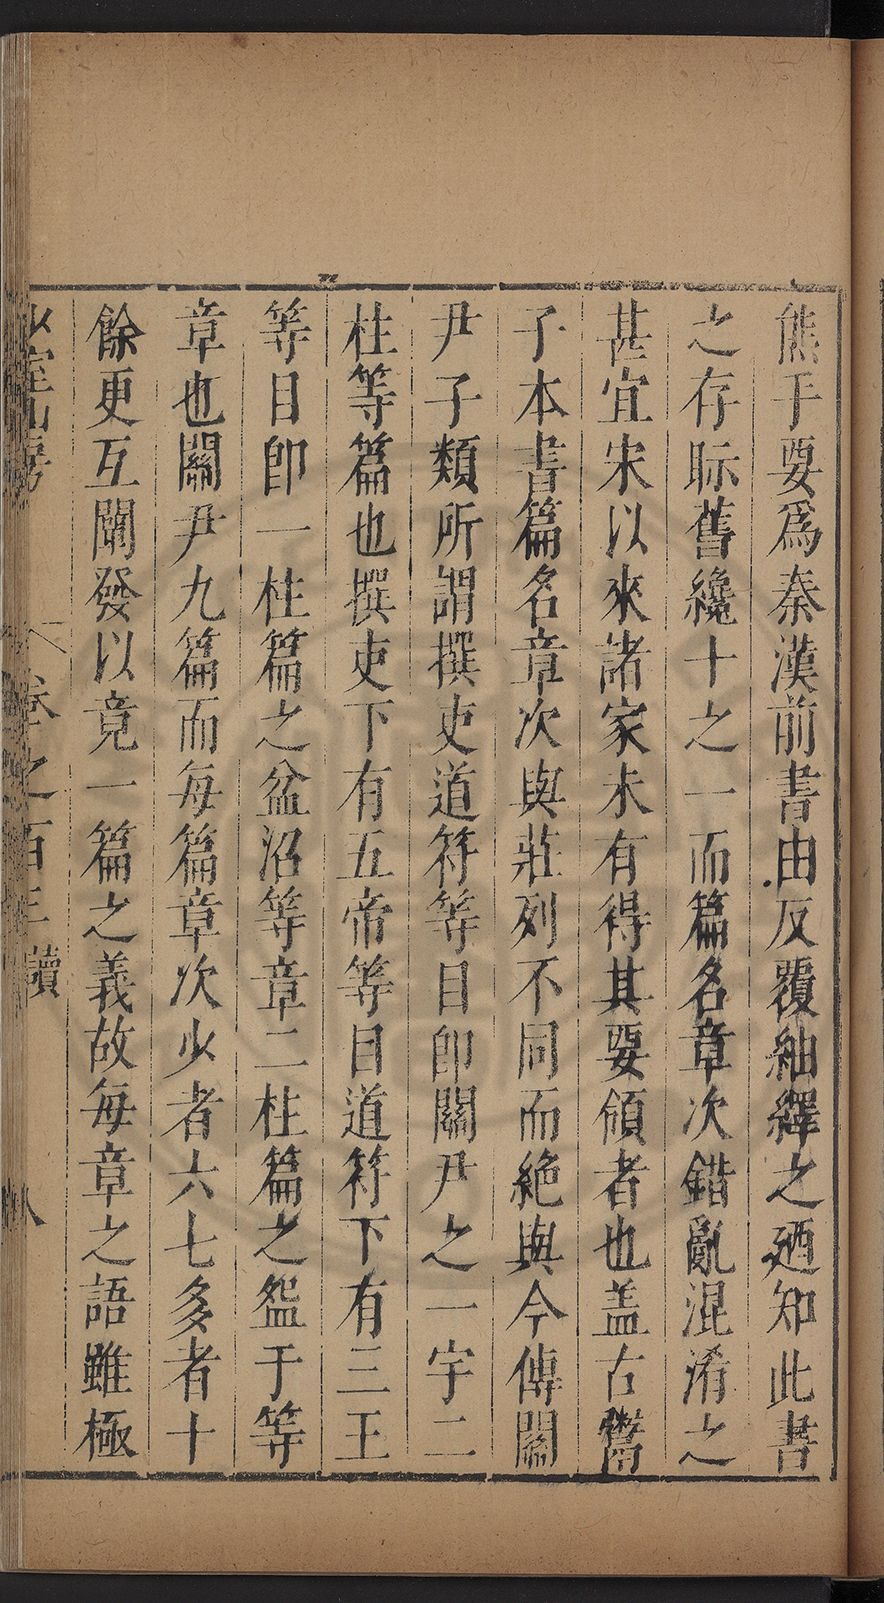 熊于要爲秦漢前書由反覆紬繹之廼知此書
之存眎舊纔十之一而篇名章次錯亂混淆之
甚宜宋以來諸家未有得其要領者也盖古鬻
子本書篇名章次與莊列不同而絶與今傳關
尹子類所謂撰吏道符等目卽關尹之一宇二
柱等篇也撰吏下有五帝等目道符下有三王
等目卽一柱篇之盆沼等章二柱篇之盌于等
章也關尹九篇而每篇章次少者六七多者十
餘更互闡發以竟一篇之義故每章之語雖極
少室山房 卷之百三 讀 八